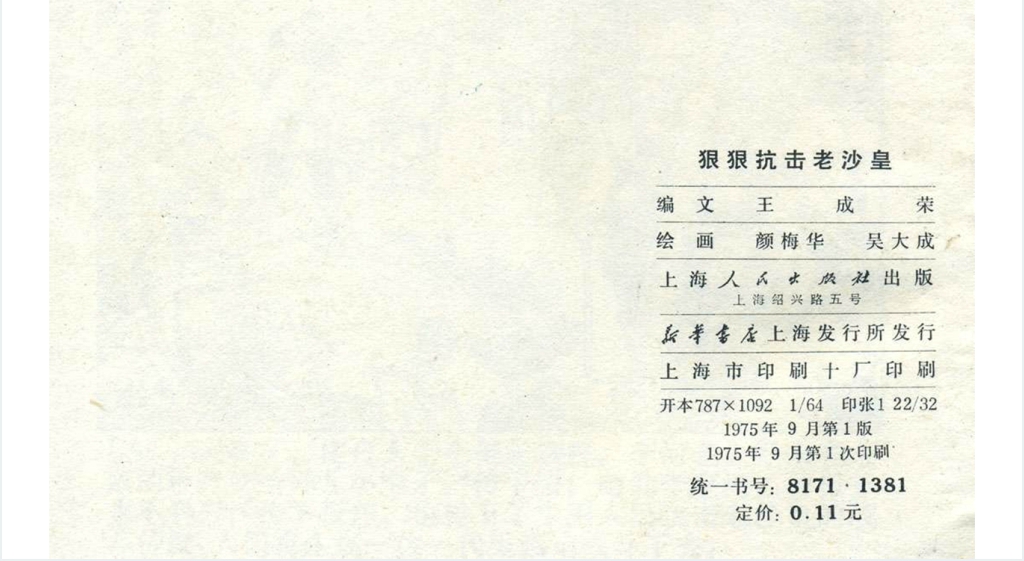 狠狠抗击老沙皇
编文 王成荣
绘画 颜梅华 吴大成
上海人民出版社出版
上海绍兴路五号
新华书店上海发行所发行
上海市印刷十厂印刷
开本787×1092 1/64 印张1 22/32
1975年9月第1版
1975年9月第1次印刷
统一书号：8171·1381
定价：0.11元